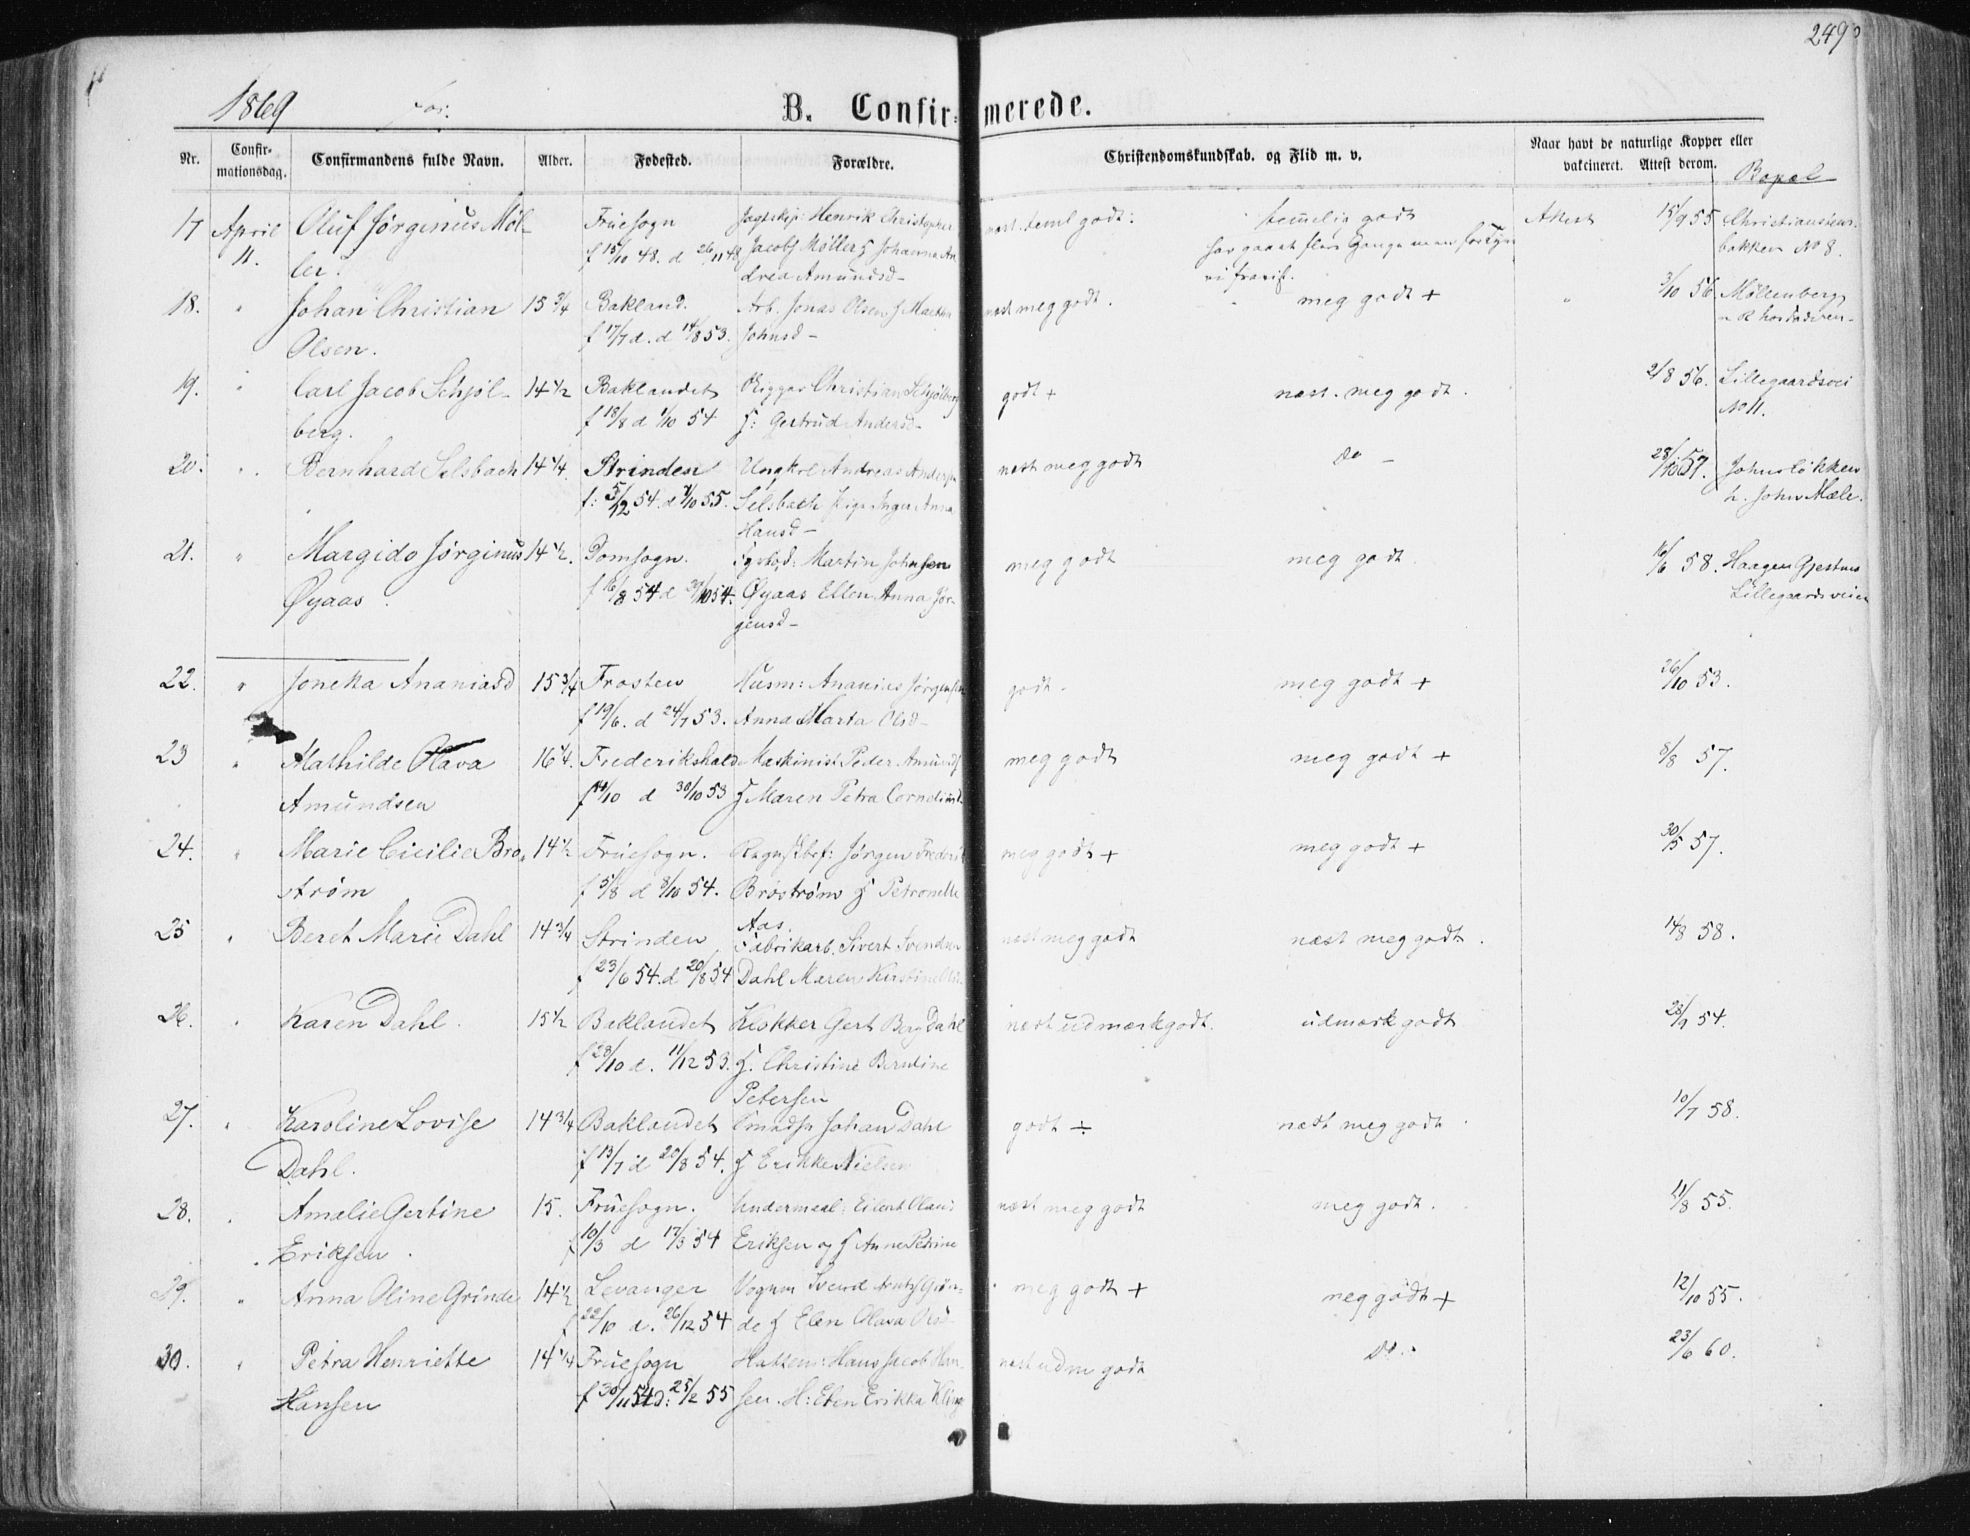 249
1869
B. Confirmerede.
Nr. Confirmationsdag. Confirmandens fulde Navn. Alder. Fødested. Forældre. Christendomskundskab. og Flid m. v. Naar havt de naturlige Kopper eller vakcineret. Attest derom. Bopæl
17 April Oluf Jørginus Møl- Fruesogn Henrik Christopher næst teml godt: temelig godt Attest 15/9 55 Christiansteins-
11. ler. f 15/10 48. d 26/11 48 Jacobs Møller Johanna An- har gaaet flere Gange men bakken No 8.
drea Amundsd-
18. " Johan Christian 15 3/4 Bakland. Arb. Jonas Olsen Martha næst meg godt. meg godt + " 3/10 56 Møllenberg
Olsen. f 17/7 d. d 14/8 53. Johnsd-
19. " Carl Jacob Schjøl- 14 1/2 Baklandet Christian Schjølberg godt + næst. meg godt. 2/8 56. Lillegaardsvei
berg. f 18/8 d 1/10 54 Gertrud Andersd- No 11.
20. " Bernhard Selsbach 14 1/4. Strinden Ungkrl Andreas Anders næst meg godt do - 28/10 57. Johnsløkken
f: 5/12 54. d 7/10 55. Selsbach Pige Inger Anna h. John Mæle.
Hansd-
21. " Margido Jørginus 14 1/2. Domsogn. Martin Johnsen meg godt meg godt 16/6 58. Haagen Gjestnes
Øyaas. f 16/8 54 d 29/10 54. Øyaas Ellen Anna Jør- Lillegaardsveien
gensd-
22. " Jonetta Ananiasd 15 3/4 Frosten Husm: Ananias Jørgensen godt. meg godt + 26/10 53.
f 19/6. d 24/7 53. Anna Marta Olsd-
23 " Mathilde Olava 16 1/4. Frederikshald Maskinist Peder Amunds meg godt meg godt + 8/8 57.
Amundsen f 14/10 d 30/10 53 Maren Petra Cornelius
24. " Marie Cicilie Bro- 14 1/2 Fruesogn. Jørgen Frederik meg godt + meg godt + 30/5 57.
strøm f 5/8 d 8/10 54. Broström Petronelle
Aas.
25 " Beret Marie Dahl 14 3/4 Strinden Fabrikarb. Sivert Svendsen næst meg godt næst meg godt. 14/8 58.
f 23/6 54. d 20/8 54 Dahl Maren
26. " Karen Dahl. 15 1/2 Baklandet Klokker Gert Berg Dahl næst udmærk godt. udmærk godt 28/9 54.
f 23/10 d. 11/12 53. Christine Berntine
Petersen
27. " Karoline Lovise 14 3/4 Baklandet Johan Dahl godt ÷ næst meg godt. 10/7 58.
Dahl. f 13/7 d 20/8 54. Erikke Nielsen
28. " Amalie Gertine 15. Fruesogn. Eilert Olaus næst meg godt meg godt. 11/8 55.
Eriksen. f 10/3 d 17/3 54 Eriksen og Anne Petrine
29. " Anna Oline Grinde 14 1/2 Levanger Vognm meg godt + meg godt + 12/10 55.
f 22/10 d. 26/12 54 de Elen Olava
30. " Petra Henriette 14 1/4 Fruesogn Hattem: Hans Jacob Han- næst udm godt do. 23/6 60.
Hansen f 30/11 54 d: 25/2 55 sen. H: Elen Erikka